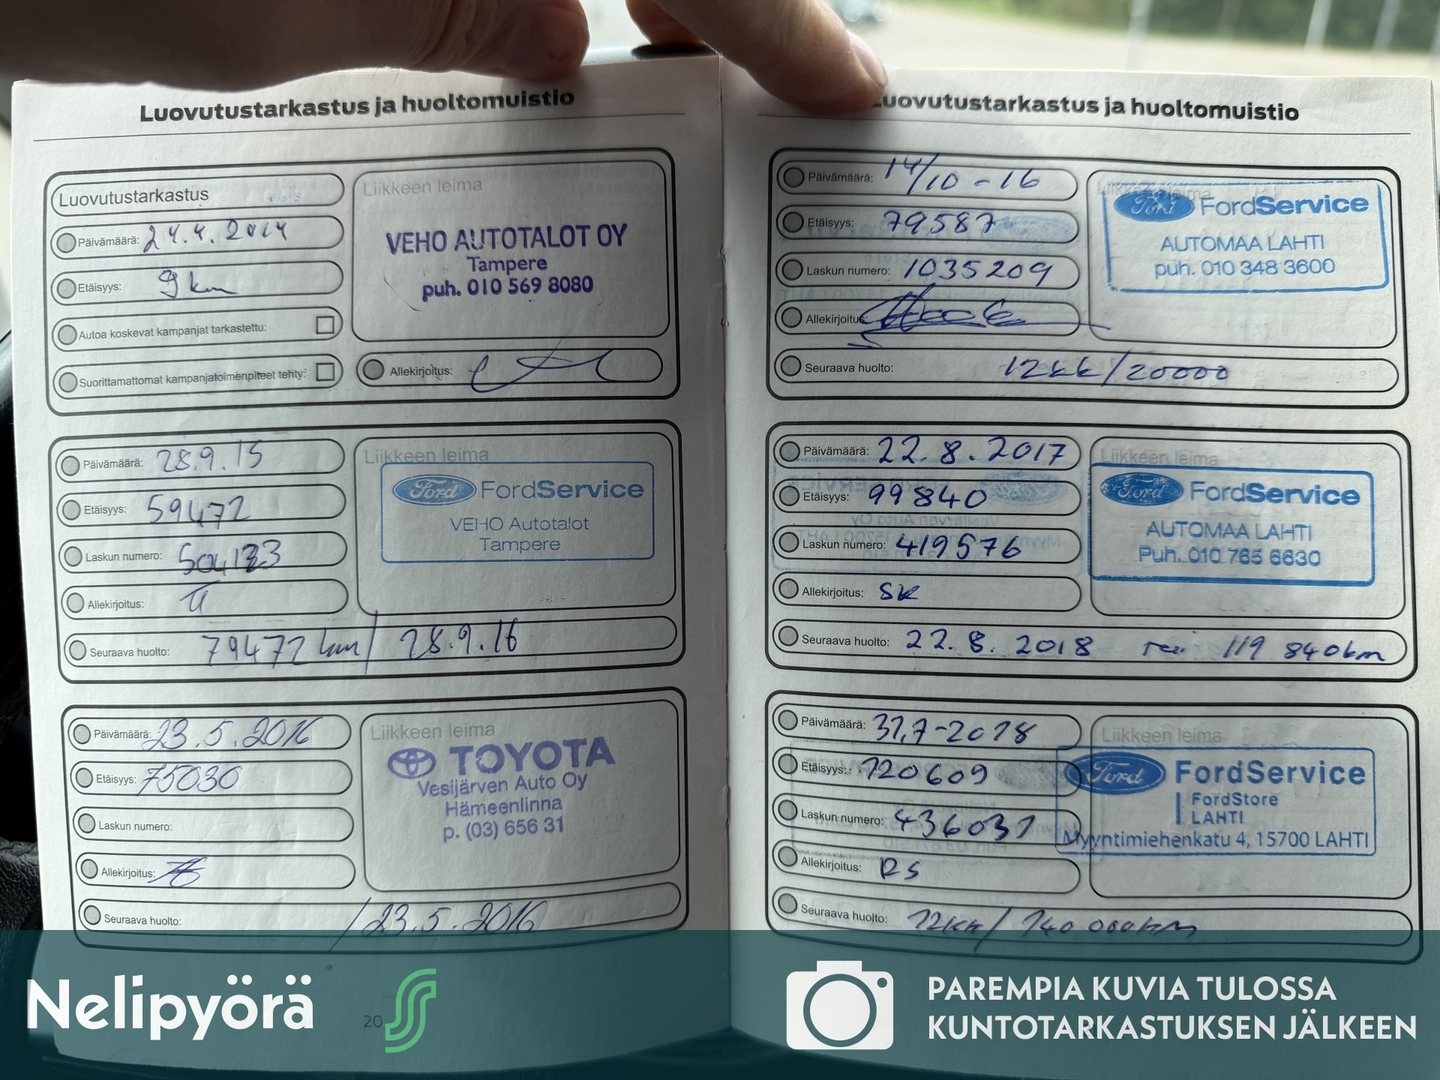 Luovutustarkastus ja huoltomuistio
Luovutustarkastus
Päivämäärä: 24.4.2014
Etäisyys: 9 km
Autoa koskevat kampanjat tarkastettu:
Suorittamattomat kampanjatoimenpiteet tehty:
Liikkeen leima
VEHO AUTOTALOT OY
Tampere
puh. 010 569 8080
Allekirjoitus:
Päivämäärä: 28.9.15
Etäisyys: 59472
Laskun numero:
Allekirjoitus:
Seuraava huolto: 79472 km / 28.9.16
Liikkeen leima
Ford FordService
VEHO Autotalot
Tampere
Päivämäärä: 23.5.2016
Etäisyys: 75030
Laskun numero:
Allekirjoitus:
Seuraava huolto: / 23.5.2016
Liikkeen leima
TOYOTA
Vesijärven Auto Oy
Hämeenlinna
p. (03) 656 31
20
Luovutustarkastus ja huoltomuistio
Päivämäärä: 14/10-16
Etäisyys: 79587
Laskun numero: 1035209
Allekirjoitus:
Seuraava huolto: 12kk/20000
Liikkeen leima
Ford FordService
AUTOMAA LAHTI
puh. 010 348 3600
Päivämäärä: 22.8.2017
Etäisyys: 99840
Laskun numero: 419576
Allekirjoitus: SK
Seuraava huolto: 22.8.2018 119 840km
Liikkeen leima
Ford FordService
AUTOMAA LAHTI
Puh. 010 765 6630
Päivämäärä: 31.7-2018
Etäisyys: 120609
Laskun numero: 436031
Allekirjoitus: RS
Seuraava huolto: 12kk/ 140 000km
Liikkeen leima
Ford FordService
FordStore
LAHTI
Myyntimiehenkatu 4, 15700 LAHTI
Nelipyörä
PAREMPIA KUVIA TULOSSA
KUNTOTARKASTUKSEN JÄLKEEN